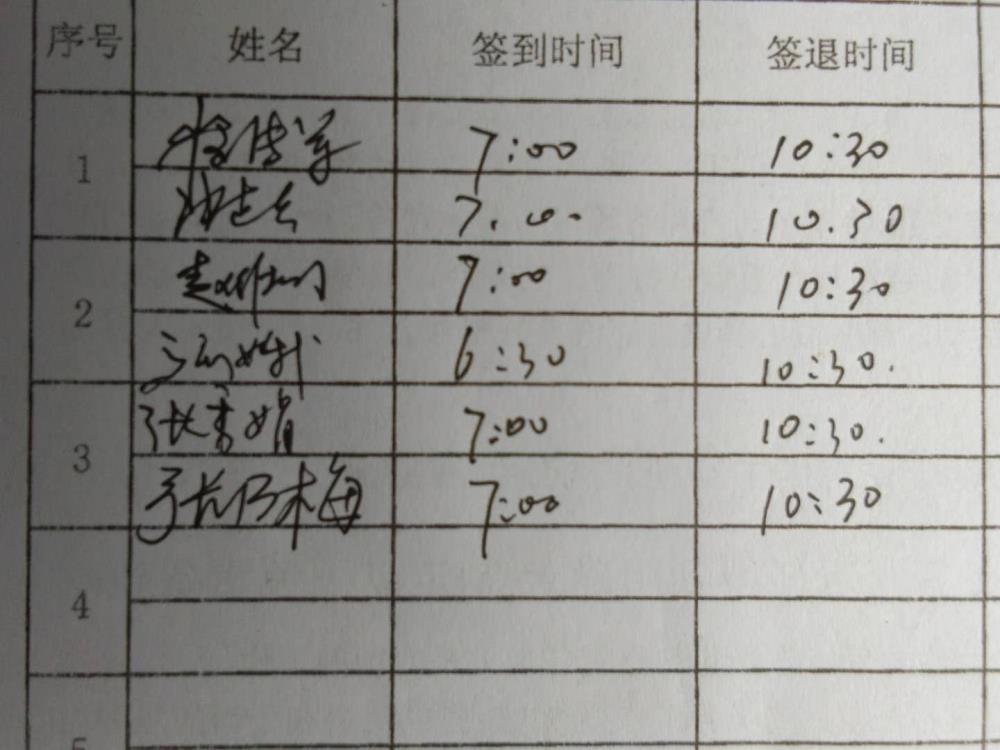 序号 姓名 签到时间 签退时间
1 7:00 10:30
7.00. 10.30
2 7:00 10:30
6:30 10:30.
3 张秀娟 7:00 10:30.
张乃梅 7:00 10:30
4
5